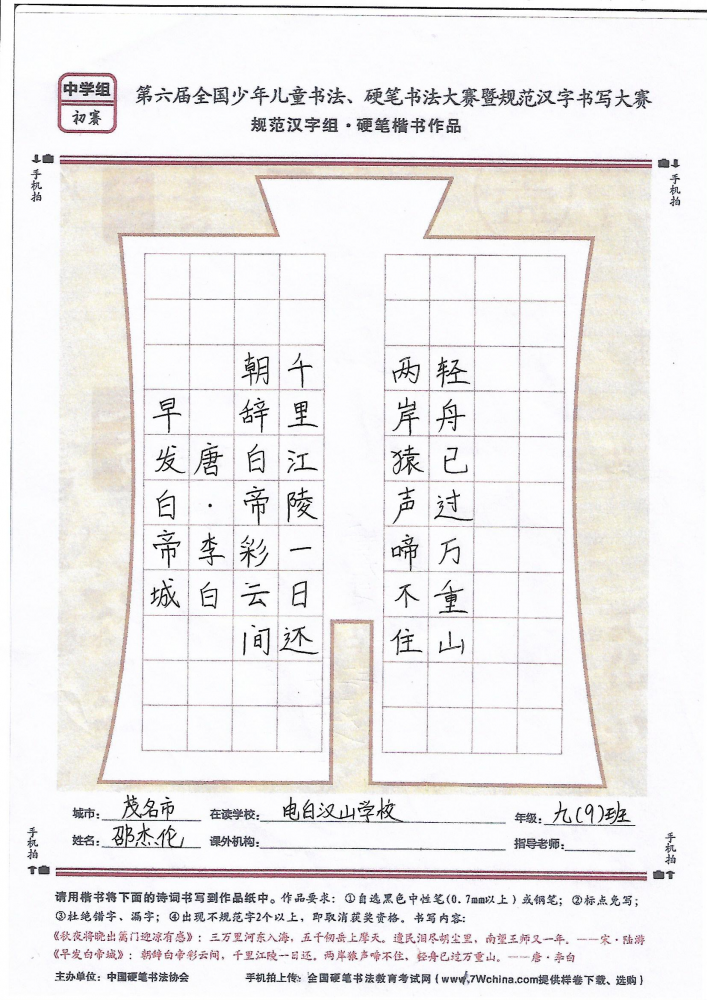 中学组
初赛
第六届全国少年儿童书法、硬笔书法大赛暨规范汉字书写大赛
规范汉字组·硬笔楷书作品
手机拍
手机拍
早发白帝城
唐·李白
朝辞白帝彩云间
千里江陵一日还
两岸猿声啼不住
轻舟已过万重山
城市：茂名市 在读学校：电白汉山学校 年级：九(9)班
姓名：邵杰伦 课外机构： 指导老师：
手机拍
手机拍
请用楷书将下面的诗词书写到作品纸中。作品要求：①自选黑色中性笔(0.7mm以上)或钢笔；②标点免写；
③杜绝错字、漏字；④出现不规范字2个以上，即取消获奖资格。书写内容：
《秋夜将晓出篱门迎凉有感》：三万里河东入海，五千仞岳上摩天。遗民泪尽胡尘里，南望王师又一年。——宋·陆游
《早发白帝城》：朝辞白帝彩云间，千里江陵一日还。两岸猿声啼不住，轻舟已过万重山。——唐·李白
主办单位：中国硬笔书法协会 手机拍上传：全国硬笔书法教育考试网{www.7Wchina.com提供样卷下载、选购}